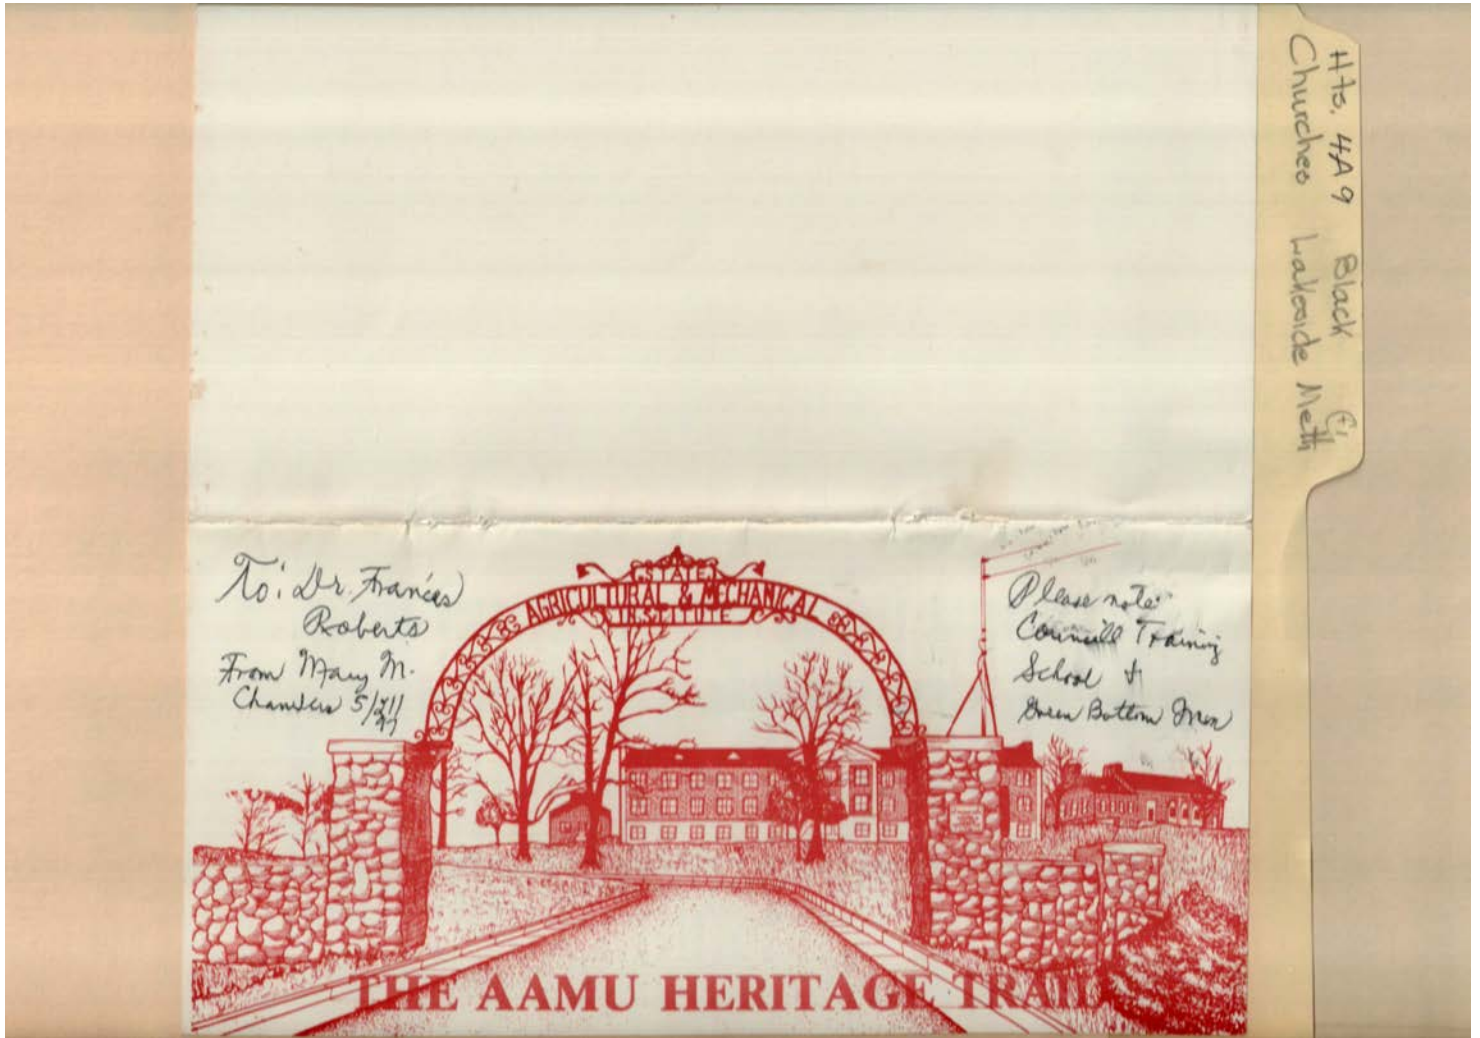 Hts. 4A9 Black
Churches Lakeside Meth
To: Dr. Frances
Roberts
From Mary M.
Chambers 5/21/
97
Please note:
Councill Training
School &
Green Bottom Inn
STATE
AGRICULTURAL & MECHANICAL
INSTITUTE
THE AAMU HERITAGE TRAIL